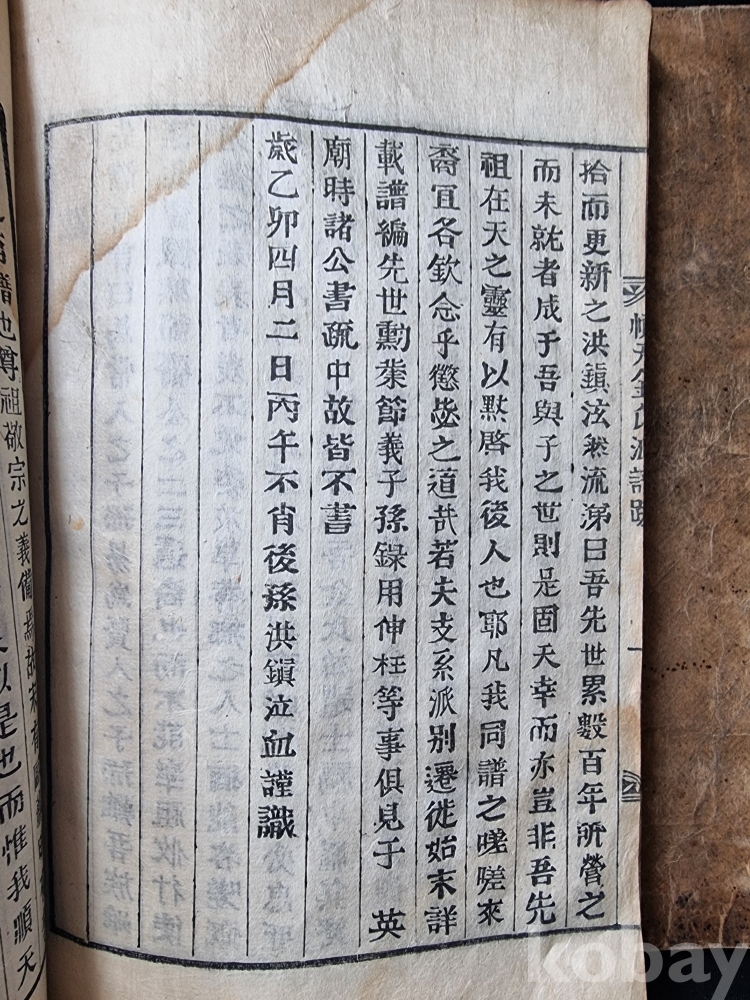 拾而更新之洪鎭泫然流涕曰吾先世累數百年所營之
而未就者成于吾與子之世則是固天幸而亦豈非吾先
祖在天之靈有以黙啓我後人也耶凡我同譜之嗟嗟來
裔宜各欽念乎懲毖之道哉若夫支系派别遷徙始末詳
載譜編先世勳業節義子孫錄用伸枉等事俱見于 英
廟時諸公書疏中故皆不書
歲乙卯四月二日丙午不肖後孫洪鎭泣血謹識
譜也尊祖敬宗之義備焉
以是也而惟我順天
順天金氏派譜跋
一
kobay